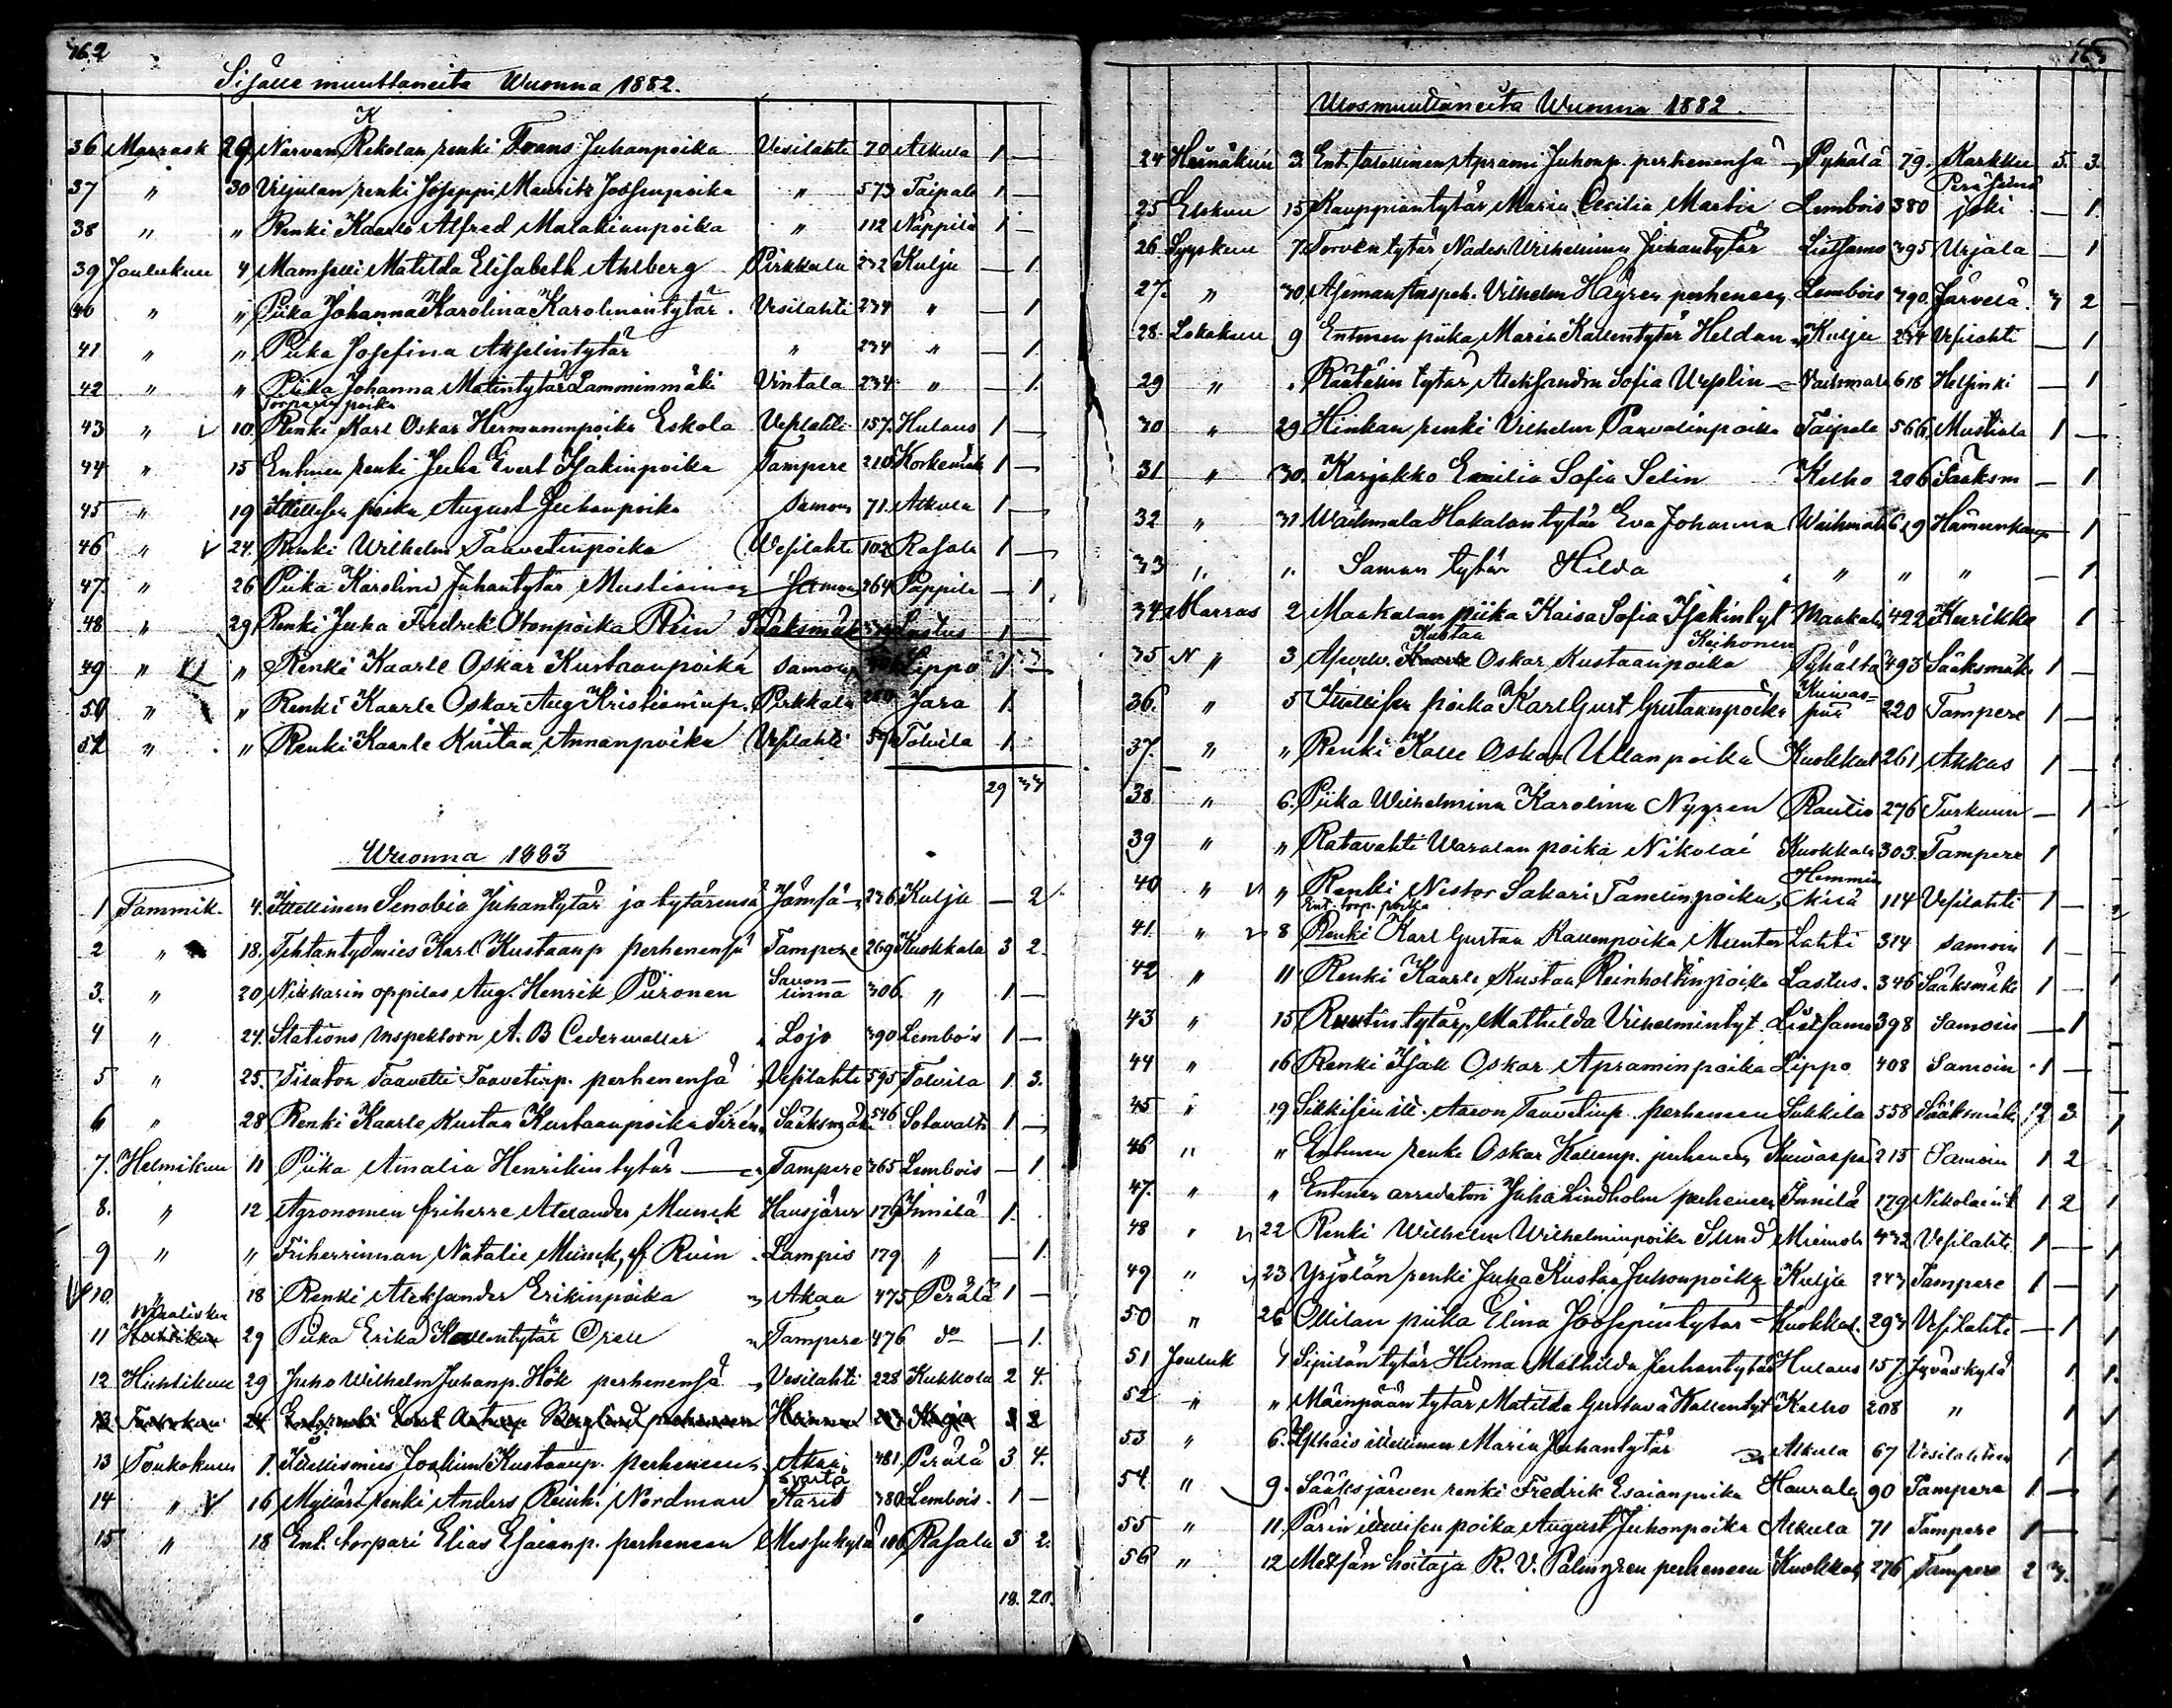 162
Sisälle muuttaneita Wuonna 1882.
36 Marrask 29 Narvan Rekolan renki Frans Juhanpoika Vesilahti 70 Alkula 1 —
37 " 30 Viljulan renki Joseppi Mauritz Josepinpoika " 573 Taipale 1 —
38 " " Renki Kaarlo Alfred Malakianpoika " 112 Näppilä 1 —
39 Joulukuu 4 Mamselli Matilda Elisabeth Ahlberg Pirkkala 232 Kulju — 1.
40 " " Piika Johanna Karolina Karolinantytär. Vesilahti 234 " — 1
41 " " Piika Josefina Akselintytär " 234 " — 1.
42 " " Piika Johanna Matintytär Lamminmäki Vintala 234 " — 1.
Torparin poika
43 " v 10. Renki Karl Oskar Hermanninpoika Eskola Vesilahti 157. Hulaus 1 —
44 " 15 Entinen renki Juha Evert Isakinpoika Tampere 210 1 —
45 " 19 Itellisen poika August Juhanpoika Samoin 71. Alkula 1 —
46 " v 24. Renki Wilhelm Taavetinpoika Wesilahti 102 Rasala 1 —
47. " 26 Piika Karolina Juhantytär Mustiainen Samoin 264 Pappila — 1.
48 " 29. Renki Juha Fredrik Otonpoika Rein Sääksmäki Lastus 1
49 " " Renki Kaarle Oskar Kustaanpoika Samoin Lippo 1 —
50 " " Renki Kaarle Oskar Aug Kristianinp. Pirkkala Jara 1.
51 " " Renki Kaarle Kustaa Annanpoika Vesilahti Tolvila 1.
29 33
Wuonna 1883
1 Tammik. 4. Itellinen Senobia Juhantytär ja tytärensä Jämsä 236 Kulju — 2
2 " 18. Tehtantyömies Karl Kustaanp perhenensä Tampere 269 Kuokkala 3 2.
3. " 20 Nikkarin oppilas Aug. Henrik Piironen Savonlinna 306. " 1. —
4 " 24. Stations Inspektorn A. B Cederwaller Lojo 390 Lembois 1 —
5 " 25. Tilaton Taavetti Taavetinp. perhenensä Vesilahti 595 Tolvila 1. 3.
6 " 28 Renki Kaarle Kustaa Kustaanpoika Sirén Sääksmäki 546 Sotavalta 1 —
7. Helmikuu 11 Piika Amalia Henrikintytär Tampere 365 Lembois — 1
8. " 12 Agronomen friherre Alexander Munck Hausjärvi 179 Innilä 1.
9 " " Friherrinnan Natalie Munck, f. Ruin Lampis 179 " — 1.
V 10. " 18 Renki Aleksander Erikinpoika Akaa 475 Perälä 1 —
11 Maaliskuu Huhtikuu 29 Piika Erika Kallentytär Orell Tampere 476 do — 1.
12 Huhtikuu 29 Juho Wilhelm Juhanp. Hök perhenensä Vesilahti 228 Kukkola 2 4.
13 Toukokuu 24 2 2
13 Toukokuu 1. Itellismies Joakim Kustaanp. perheneen Akaa 481. Perälä 3 4.
14 " V 16 Myllärirenki Anders Reinh. Nordman Svartå Karis 380 Lembois. 1 —
15 " 18 Ent. torpari Elias Esaianp. perheneen Messukylä 106 Rasala 3 2.
18. 20.
163
Ulosmuuttaneita Wuonna 1882.
24 Heinäkuu 3. Ent. talollinen Aprami Juhonp. perhenensä Pyhälä 79. Karkku 5. 3.
25 Elokuu 15 Kauppiantytär Maria Cecilia Martin Lembois 380 Peräseinäjoki — 1.
26. Syyskuu 7 Torvén tytär Nades. Wilhelmina Juhantytär Liitsamo 395 Urjala — 1
27. " 30. Aseman Inspeh. Vilhelm Häyren perheneen Lembois 390. Järvelä. 3 2
28. Lokakuu 9 Entinen piika Maria Kallentytär Heldan Kulju 234 Vesilahti — 1
29 " " Räätälin tytär Aleksandra Sofia Weslin Naismala 618 Helsinki — 1
30 " 29 Hinkan renki Vilhelm Paavalinpoika Taipale 566, Mustiala 1 —
31 " 30. Karjakko Emilia Sofia Selin Kelho 206 Sääksm — 1
32 " 31 Waihmala Hakalan tytär Eva Johanna Waihmala 619 — 1
33 " " Saman tytär Hilda " " " — 1.
34 Marras 2 Maakalan piika Kaisa Sofia Isakintyt Maakala 422 Kurikka 1
35 " 3 Kaarle Kustaa Oskar Kustaanpoika Keihonen Pyhältä 493 Sääksmäki 1 —
36. " 5 Itellisen poika Karl Gust Gustaanpoika Kuivaspää 220 Tampere 1 —
37. " " Renki Kalle Oskar Ullanpoika Kuokkal 261 Akkas 1 —
38 " 6. Piika Wilhelmina Karolina Nygren Rautio 276 Turkuun — 1
39 " " Ratavahti Waralan poika Nikolai Kuokkala 303. Tampere 1
40 " v " Renki Nestor Sakari Tanelinpoika, Hemminkilä 114 Vesilahti 1 —
Ent. torp. poika
41. " v 8 Renki Karl Gustaa Kallenpoika Munter Lahti 314 samoin 1 —
42 " 11 Renki Kaarle Kustaa Reinholtinpoika Lastus. 346 Sääksmäki 1 —
43 " 15 Ruutin tytär, Mathilda Vilhelmintyt Liitsamo 398 Samoin — 1
44 " 16 Renki Isak Oskar Apraminpoika Lippo 408 Samoin 1 —
45 " 19 Sikkisen itl. Aaron Taavetinp. perheneen Sikkilä 558 Sääksmäki 2 3
46 " " Entinen renki Oskar Kallenp. perheneen Kuivaspää 215 Samoin 1 2
47. " " Entinen arrendatori Juha Lindholm perheneen Innilä 179 Nikolaink 1. 2
48 " v 22 Renki Wilhelm Wilhelminpoika Sund Miemola 432 Vesilahti 1 —
49 " v 23 Yrjölän renki Juha Kustaa Juhonpoika Kulju 243 Tampere 1 —
50 " 26 Ollilan piika Elina Joosepintytär Kuokkal. 293 Vesilahti — 1
51 Jouluk 4 Sipilän tytär Hilma Mathilda Juhantytär Hulaus 157. Jyväskylä 1.
52 " " Mäenpään tytär Matilda Gustava Kallentyt Kelho 208 " 1
53 " 6. Ylhäis itellinen Maria Juhantytär Alkula 67 Vesilahteen 1
54. " 9. Sääksjärven renki Fredrik Esaianpoika Haurala 90 Tampere 1 —
55 " 11. Pärin itellisen poika August Juhonpoika Alkula 71 Tampere 1 —
56 " 12 Metsän hoitaja R. V. Palmgren perheneen Kuokkal 276 Tampere 2 3.